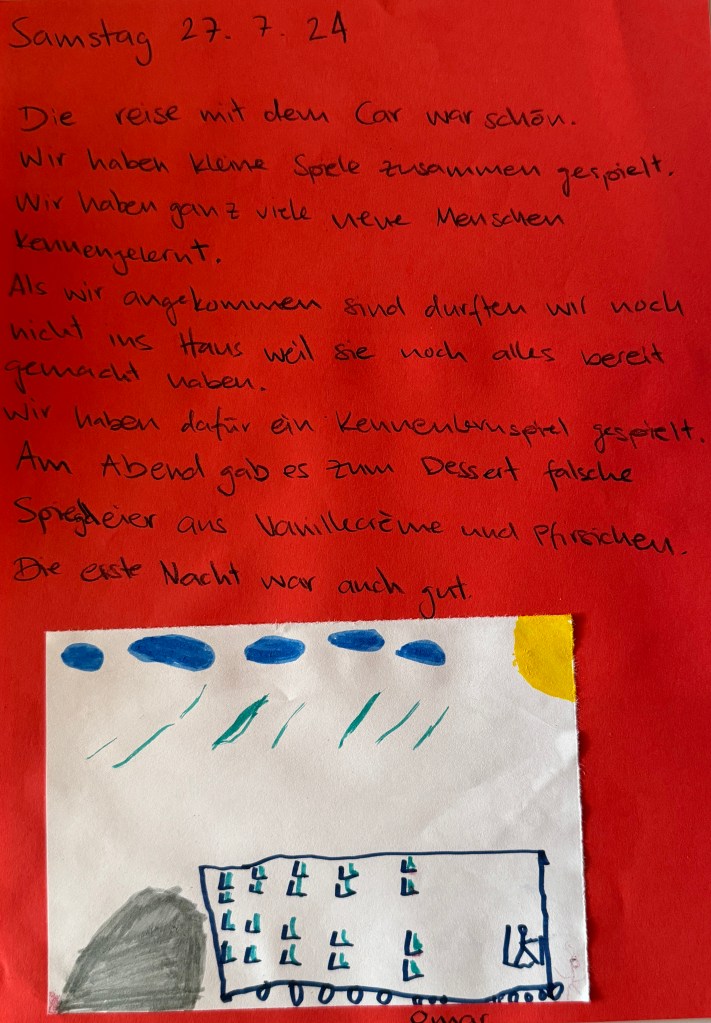 Samstag 27. 7. 24
Die reise mit dem Car war schön.
Wir haben kleine Spiele zusammen gespielt.
Wir haben ganz viele neue Menschen
kennengelernt.
Als wir angekommen sind durften wir noch
nicht ins Haus weil sie noch alles bereit
gemacht haben.
Wir haben dafür ein Kennenlernspiel gespielt.
Am Abend gab es zum Dessert falsche
Spiegeleier aus Vanillecrème und Pfirsichen.
Die erste Nacht war auch gut.
Omar